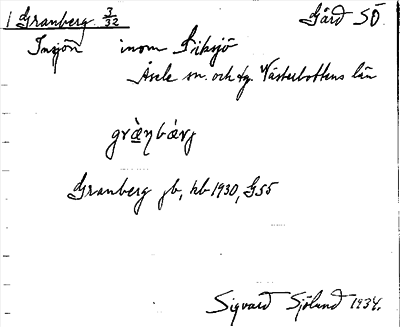 1 Granberg 3/32 Gård SÖ
Insjön inom Siksjö
Åsele sn. och tg. Västerbottens län
grànbærj
Granberg jb, kb 1930, GSS
Sigvard Sjölund 1934.